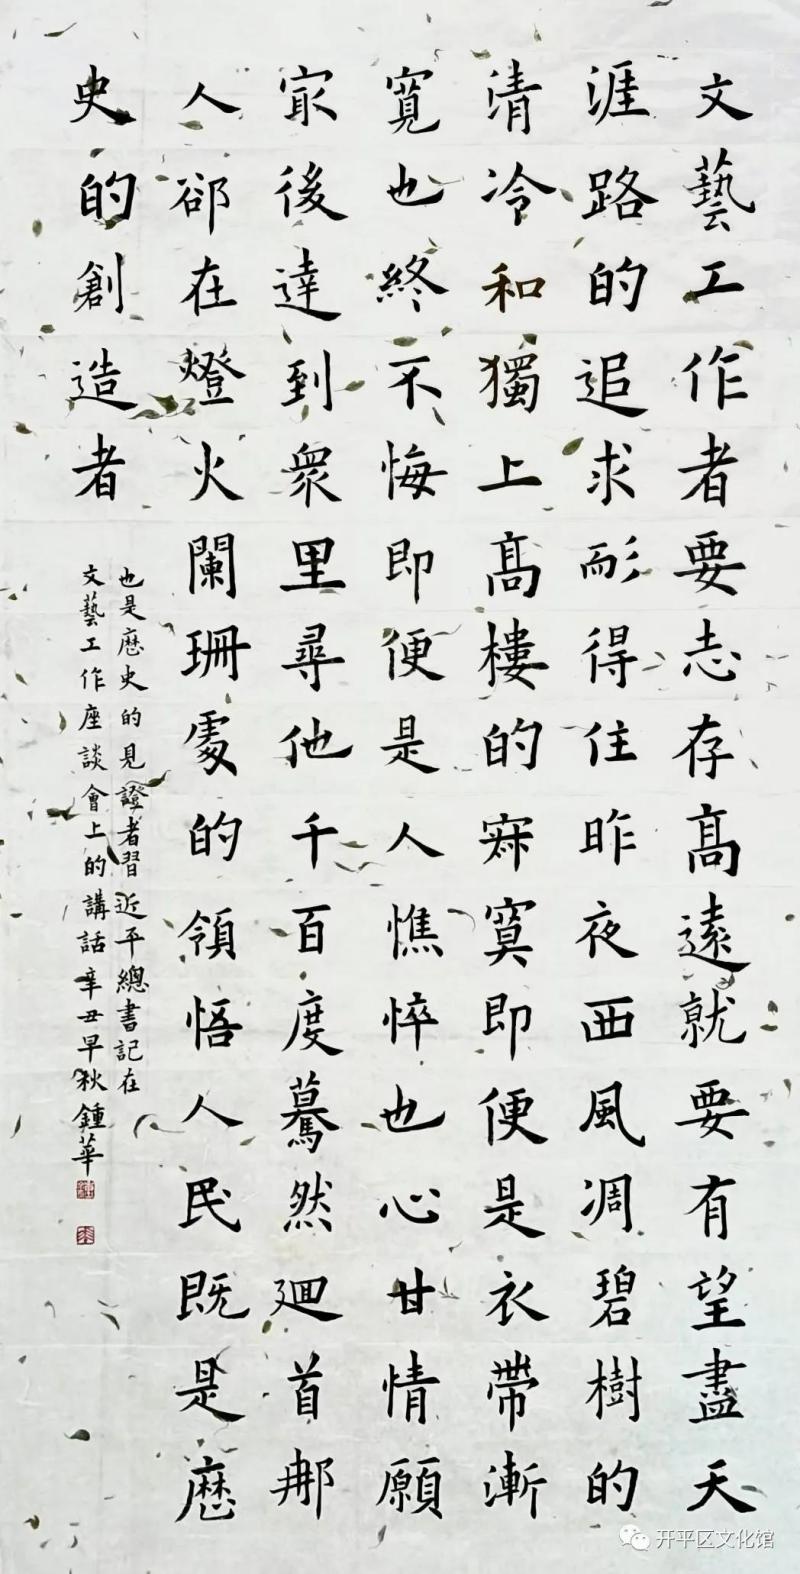 文藝工作者要志存髙遠就要有望盡天
涯路的追求耏得住昨夜西風凋碧樹的
清冷和獨上髙樓的寂寞即便是衣帶漸
寬也終不悔即便是人憔悴也心甘情願
冣後達到眾里尋他千百度驀然廻首那
人卻在燈火闌珊處的領悟人民既是歷
史的創造者
也是歷史的見證者習近平總書記在
文藝工作座談會上的講話辛丑早秋鍾華
开平区文化馆